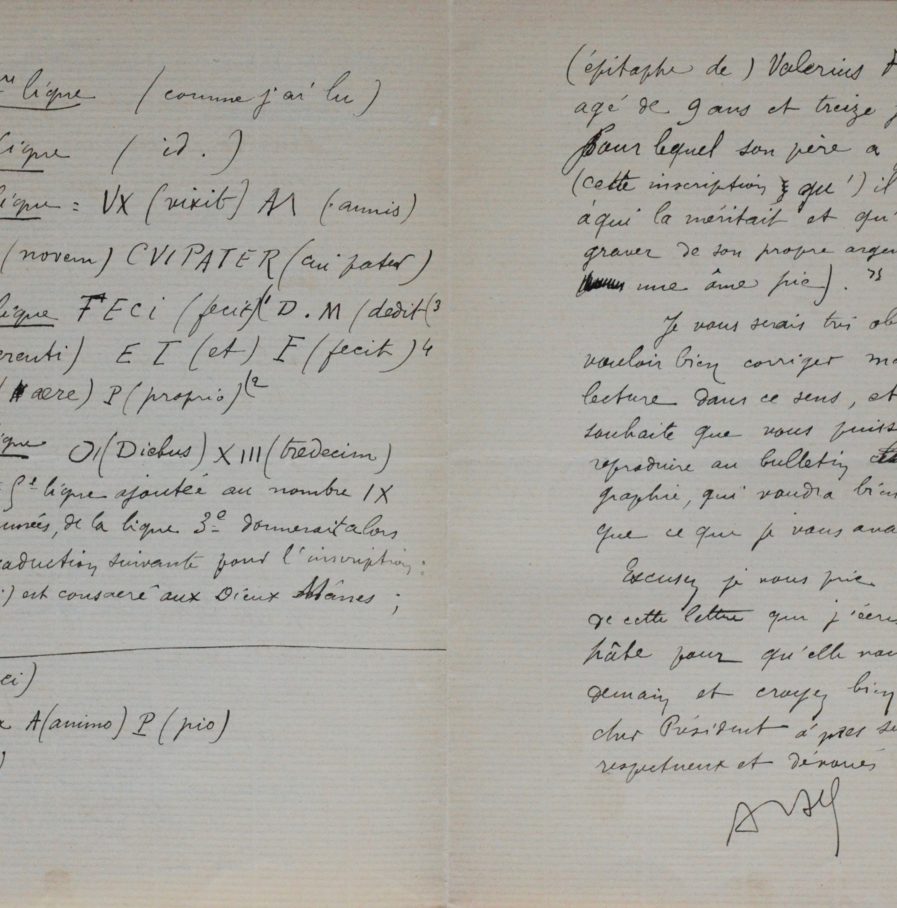 ligne (comme j'ai lu)
ligne (id.)
ligne = VX (vixit) AN (annis)
(novem) CVIPATER (cui pater)
ligne FECI (fecit)(1 D.M (dedit(3
erenti) ET (et) F (fecit)4
(aere) P (proprio)(2
DI (Diebus) XIII (tredecim)
ligne ajoutée au nombre IX
nnées, de la ligne 3e donnerait alors
raduction suivante pour l'inscription:
) est consacré aux Dieux Mânes;
ci)
A (animo) P (pio)
(épitaphe de) Valerius
agé de 9 ans et treize
pour lequel son père a
(cette inscription qu') il
à qui la méritait et qu'
graver de son propre argen
une âme pie).
Je vous serais très ob
vouloir bien corriger m
lecture dans ce sens, et
souhaite que vous puiss
reproduire au bulletin
graphie, qui voudra bien
que ce que je vous ava
Excusez je vous prie
de cette lettre que j'écri
hâte pour qu'elle vou
demain et croyez bien
cher Président à mes se
respectueux et dévoués